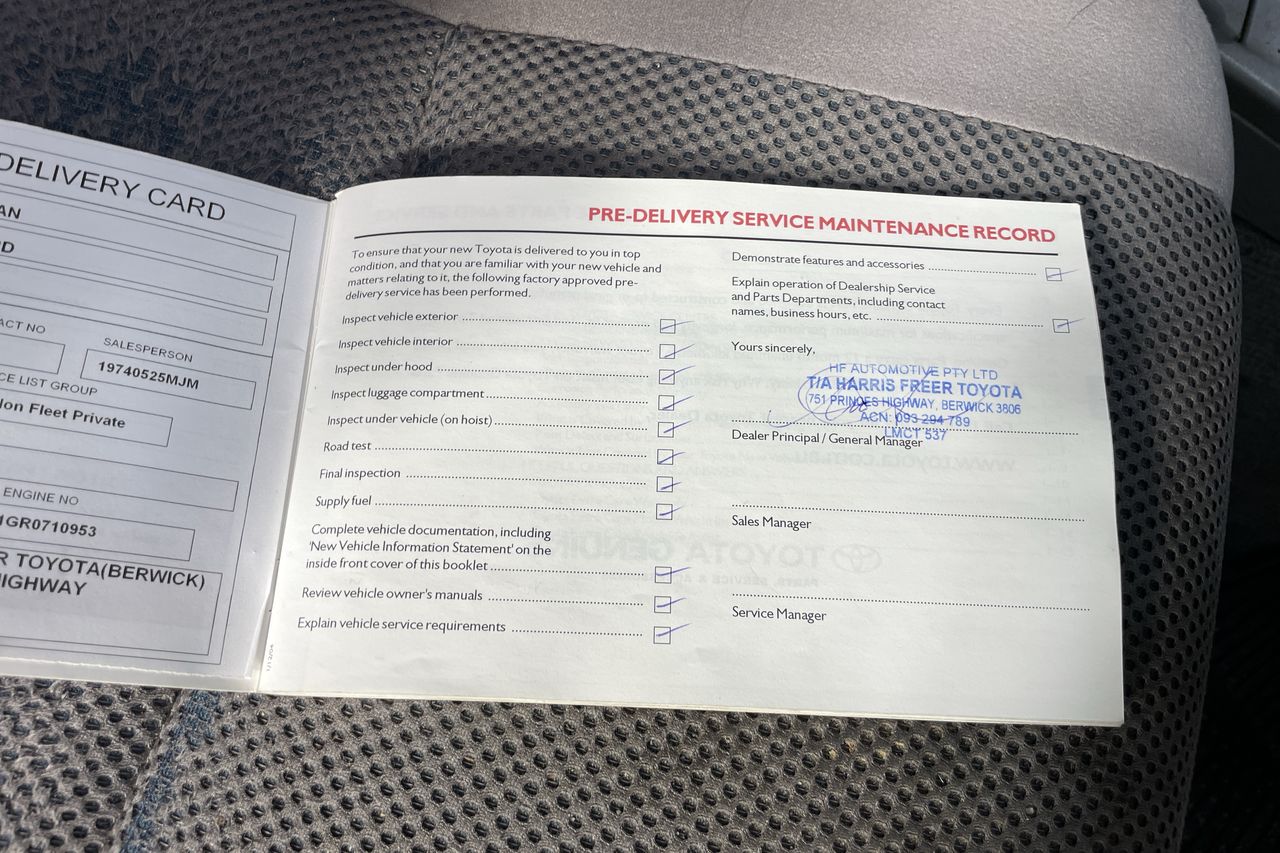 DELIVERY CARD
AN
D
ACT NO
SALESPERSON
19740525MJM
CE LIST GROUP
on Fleet Private
ENGINE NO
1GR0710953
R TOYOTA(BERWICK)
HIGHWAY
PRE-DELIVERY SERVICE MAINTENANCE RECORD
To ensure that your new Toyota is delivered to you in top
condition, and that you are familiar with your new vehicle and
matters relating to it, the following factory approved pre-
delivery service has been performed.
Inspect vehicle exterior
Inspect vehicle interior
Inspect under hood
Inspect luggage compartment
Inspect under vehicle (on hoist)
Road test
Final inspection
Supply fuel
Complete vehicle documentation, including
'New Vehicle Information Statement' on the
inside front cover of this booklet
Review vehicle owner's manuals
Explain vehicle service requirements
Demonstrate features and accessories
Explain operation of Dealership Service
and Parts Departments, including contact
names, business hours, etc.
Yours sincerely,
HF AUTOMOTIVE PTY LTD
T/A HARRIS FREER TOYOTA
751 PRINCES HIGHWAY, BERWICK 3806
ACN: 093 294 789
LMCT 537
Dealer Principal / General Manager
Sales Manager
Service Manager